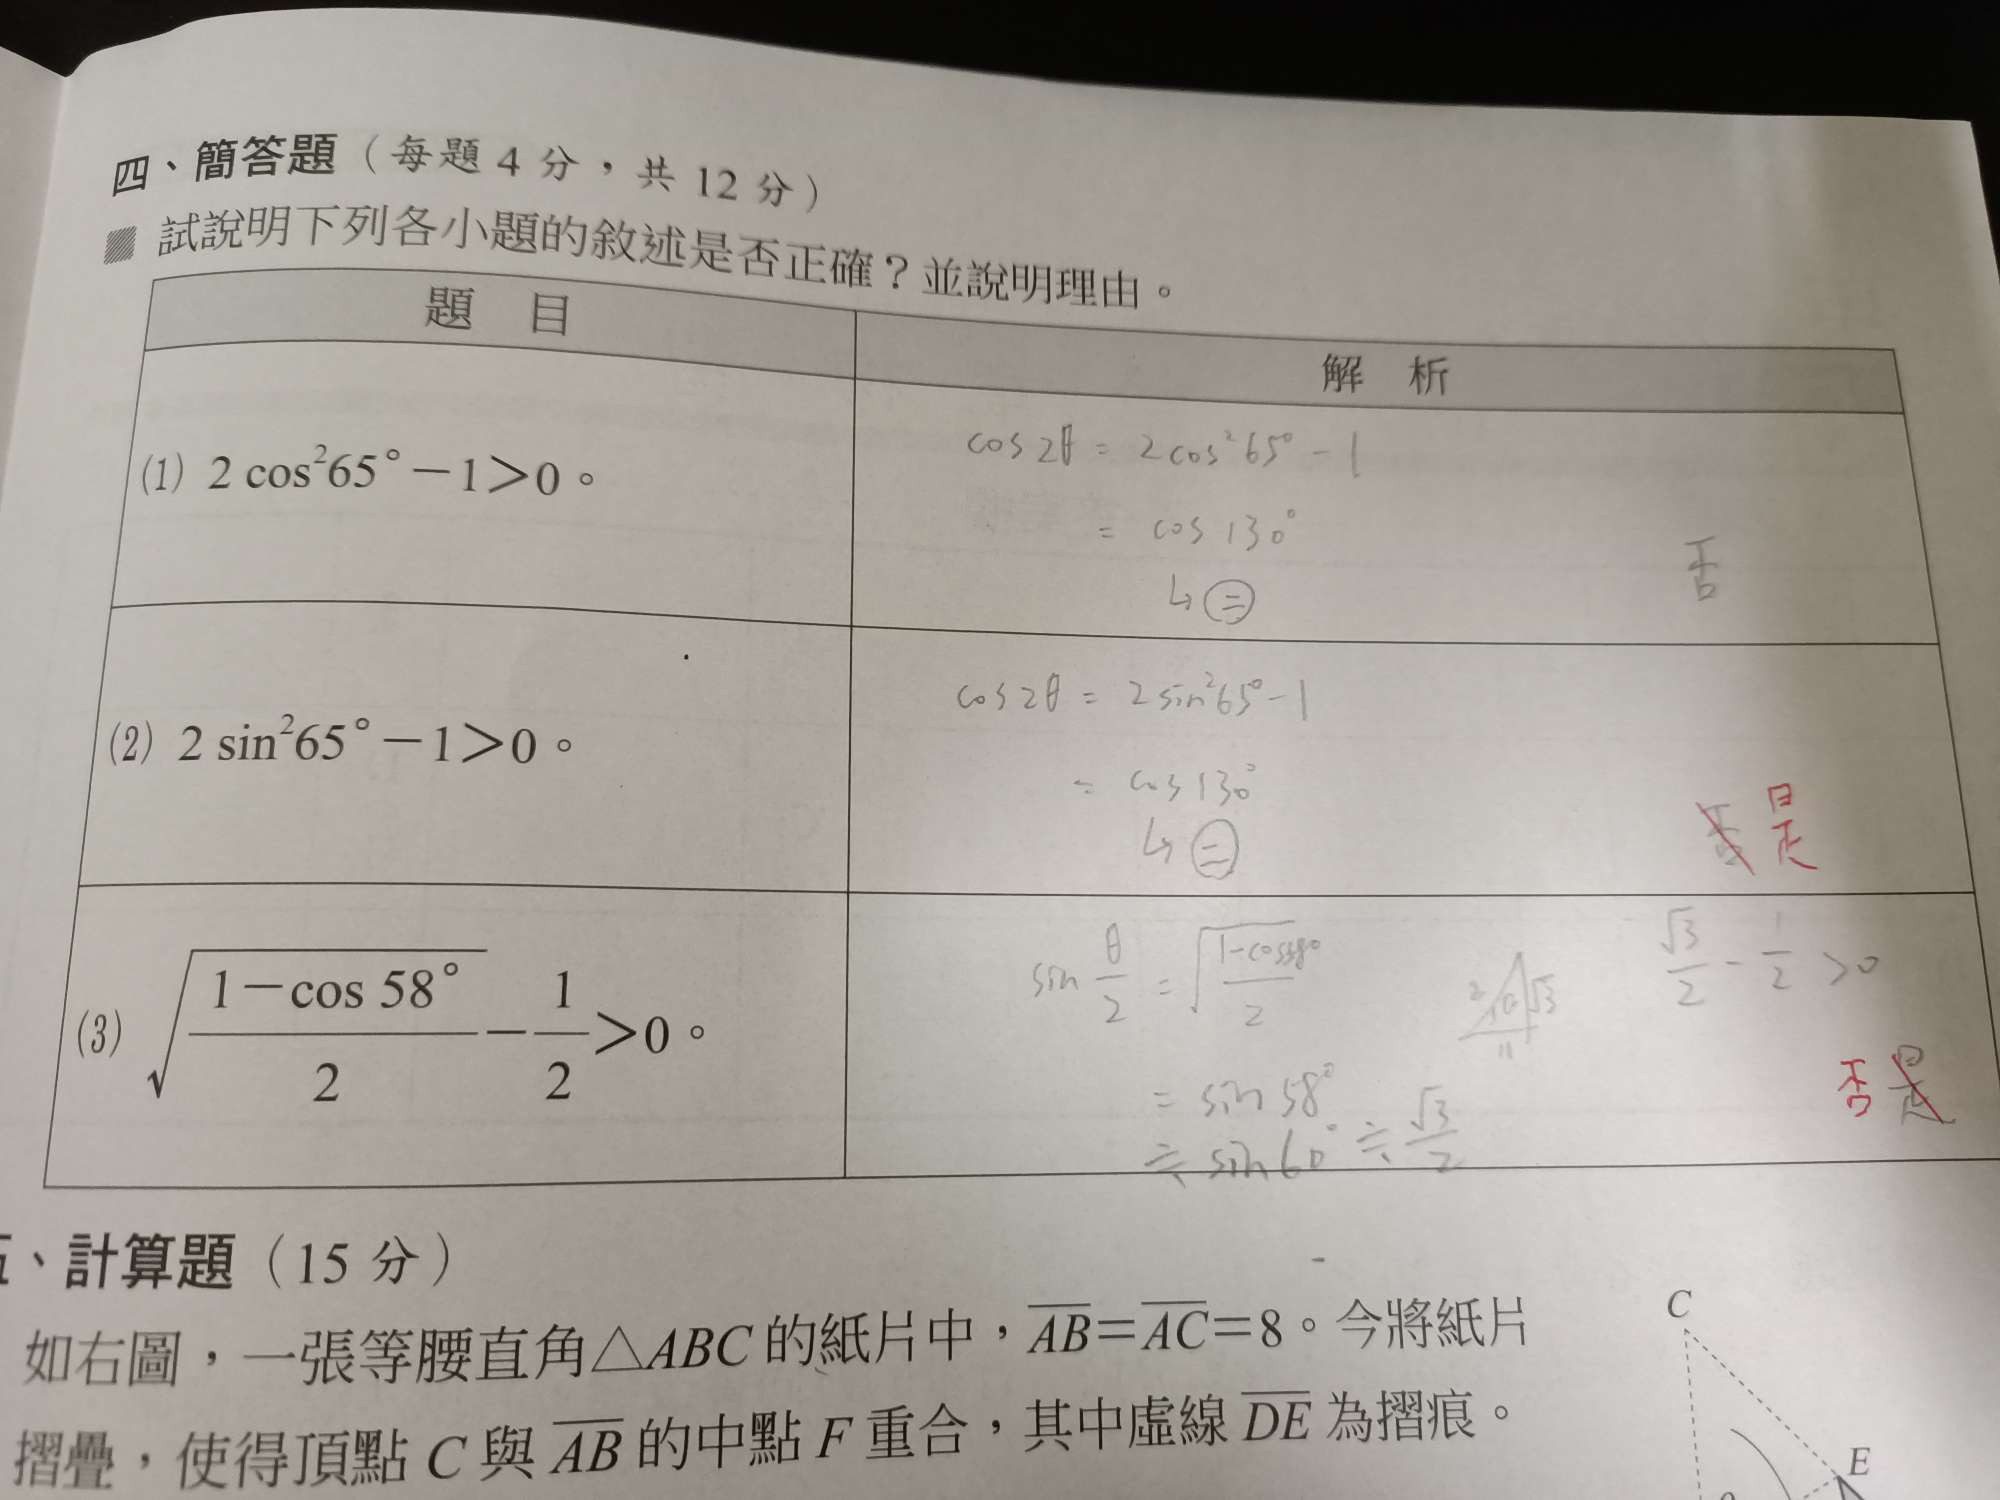 四、簡答題（每題 4 分，共 12 分）
試說明下列各小題的敘述是否正確？並說明理由。
題 目
解 析
(1) 2 cos²65°－1＞0。
cos2θ = 2cos²65°-1
= cos 130°
↳ ㊁
否
(2) 2 sin²65°－1＞0。
cos2θ = 2sin²65°-1
= cos130°
↳ ㊁
否 是
(3) √((1－cos 58°)/2)－1/2＞0。
sin θ/2 = √((1-cos58°)/2)
2 √3
√3/2 - 1/2 >0
= sin 58°
≒ sin60° ≒ √3/2
否 是
、計算題（15 分）
如右圖，一張等腰直角△ABC 的紙片中，AB＝AC＝8。今將紙片
摺疊，使得頂點 C 與 AB 的中點 F 重合，其中虛線 DE 為摺痕。
C
E